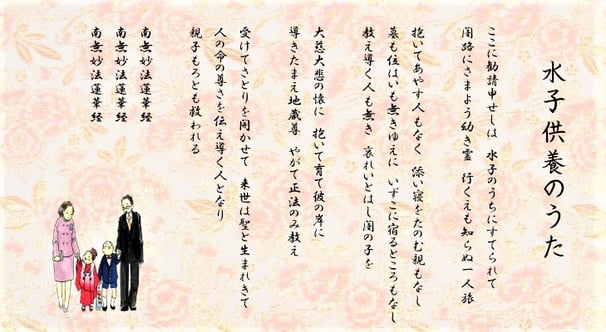 水子供養のうた
ここに勧請申せしは 水子のうちにすてられて
闇路にさまよう幼き霊 行くえも知らぬ一人旅
抱いてあやす人もなく 添い寝をたのむ親もなし
墓も位はいも無きゆえに いずこに宿るところもなし
教え導く人も無き 哀れいとほし闇の子を
大慈大悲の懐に 抱いて育て彼の岸に
導きたまえ地蔵尊 やがて正法のみ教え
受けてさとりを開かせて 来世は聖と生まれきて
人の命の尊さを伝え導く人となり
親子もろとも救われる
南無妙法蓮華経
南無妙法蓮華経
南無妙法蓮華経